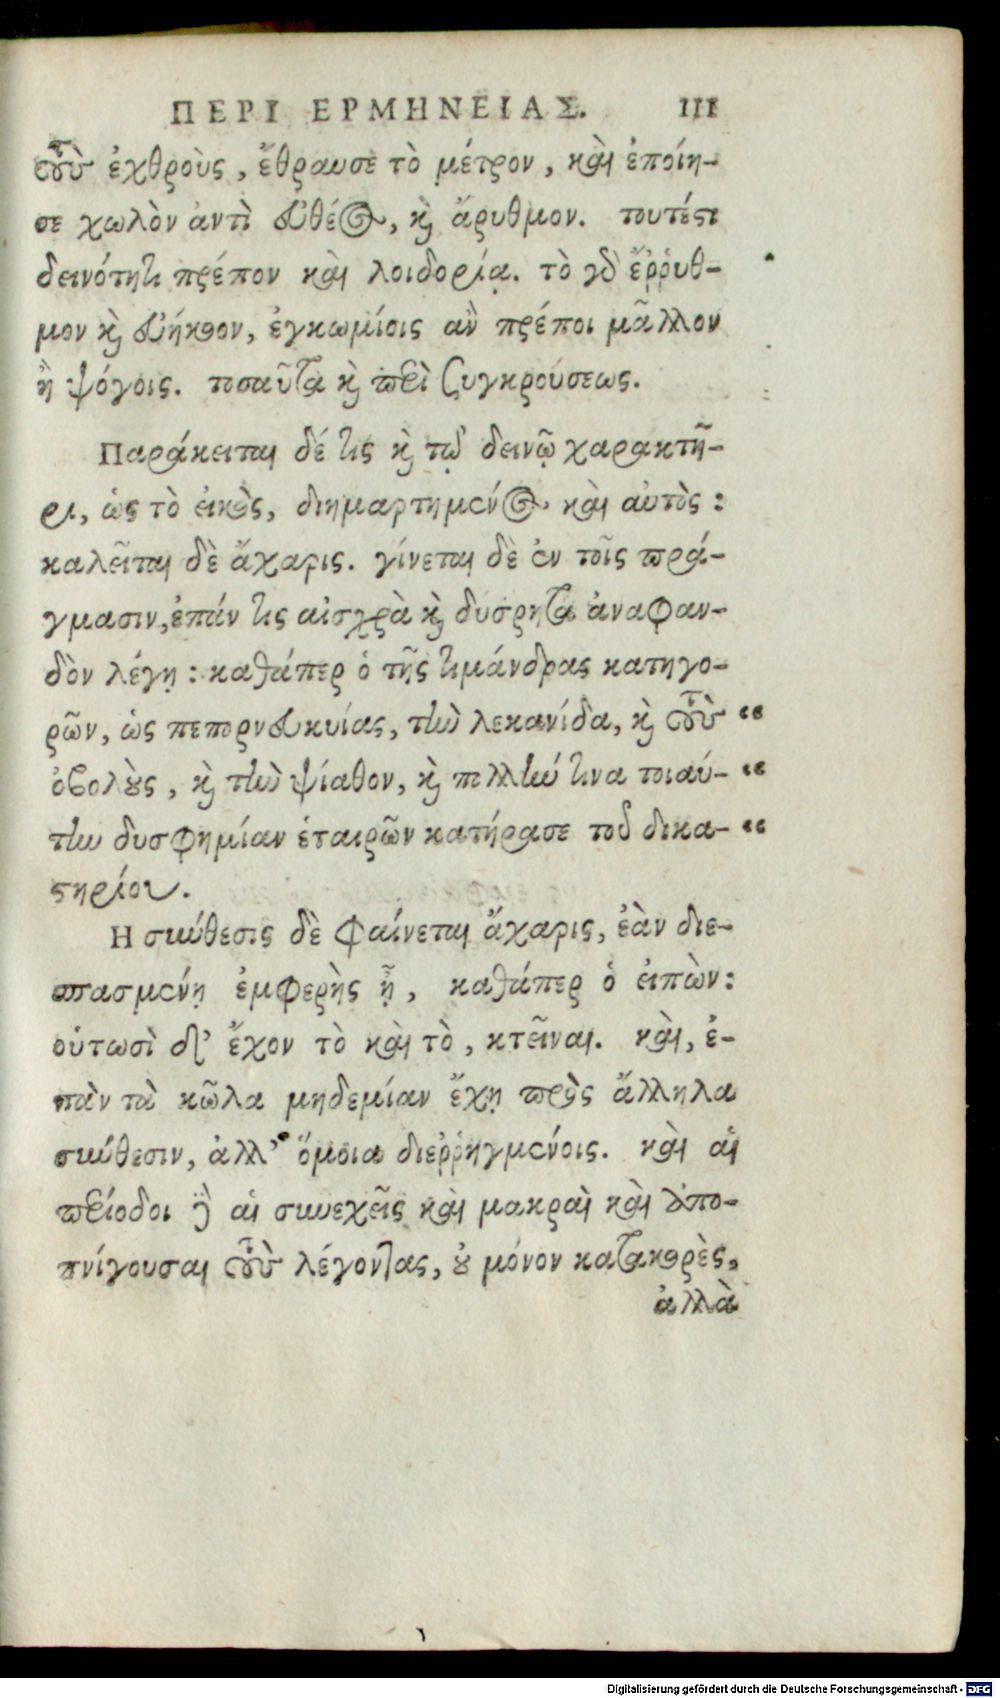 ΠΕΡΙ ΕΡΜΗΝΕΙΑΣ. 111
τοὺς ἐχθροὺς, ἔθραυσε τὸ μέτρον, καὶ ἐποίη-
σε χωλὸν ἀντὶ εὐθέος, καὶ ἄρυθμον. τουτέστι
δεινότητι πρέπον καὶ λοιδορίᾳ. τὸ γὰρ ἔῤῥυθ-
μον καὶ εὐήκοον, ἐγκωμίοις ἂν πρέποι μᾶλλον
ἢ ψόγοις. τοσαῦτα καὶ περὶ συγκρούσεως.
Παράκειται δέ τις καὶ τῷ δεινῷ χαρακτῆ-
ρι, ὡς τὸ εἰκὸς, διημαρτημένος καὶ αὐτὸς:
καλεῖται δὲ ἄχαρις. γίνεται δὲ ἐν τοῖς πρά-
γμασιν, ἐπάν τις αἰσχρὰ καὶ δύσρητα ἀναφαν-
δὸν λέγῃ: καθάπερ ὁ τῆς τιμάνδρας κατηγο-
ρῶν, ὡς πεπορνευκυίας, τὴν λεκανίδα, καὶ τοὺς “
ὀβολοὺς, καὶ τὴν ψίαθον, καὶ πολλήν τινα τοιαύ- “
την δυσφημίαν ἑταιρῶν κατήρασε τοῦ δικα- “
στηρίου.
Η σύνθεσις δὲ φαίνεται ἄχαρις, ἐὰν διε-
σπασμένῃ ἐμφερὴς ᾖ, καθάπερ ὁ εἰπὼν:
οὑτωσὶ δ’ ἔχον τὸ καὶ τὸ, κτεῖναι. καὶ, ἐ-
πὰν τὰ κῶλα μηδεμίαν ἔχῃ πρὸς ἄλληλα
σύνθεσιν, ἀλλ’ ὅμοια διεῤῥηγμένοις. καὶ αἱ
περίοδοι δὲ αἱ συνεχεῖς καὶ μακραὶ καὶ ἀπο-
πνίγουσαι τοὺς λέγοντας, οὐ μόνον κατακορὲς,
ἀλλὰ
Digitalisierung gefördert durch die Deutsche Forschungsgemeinschaft - DFG